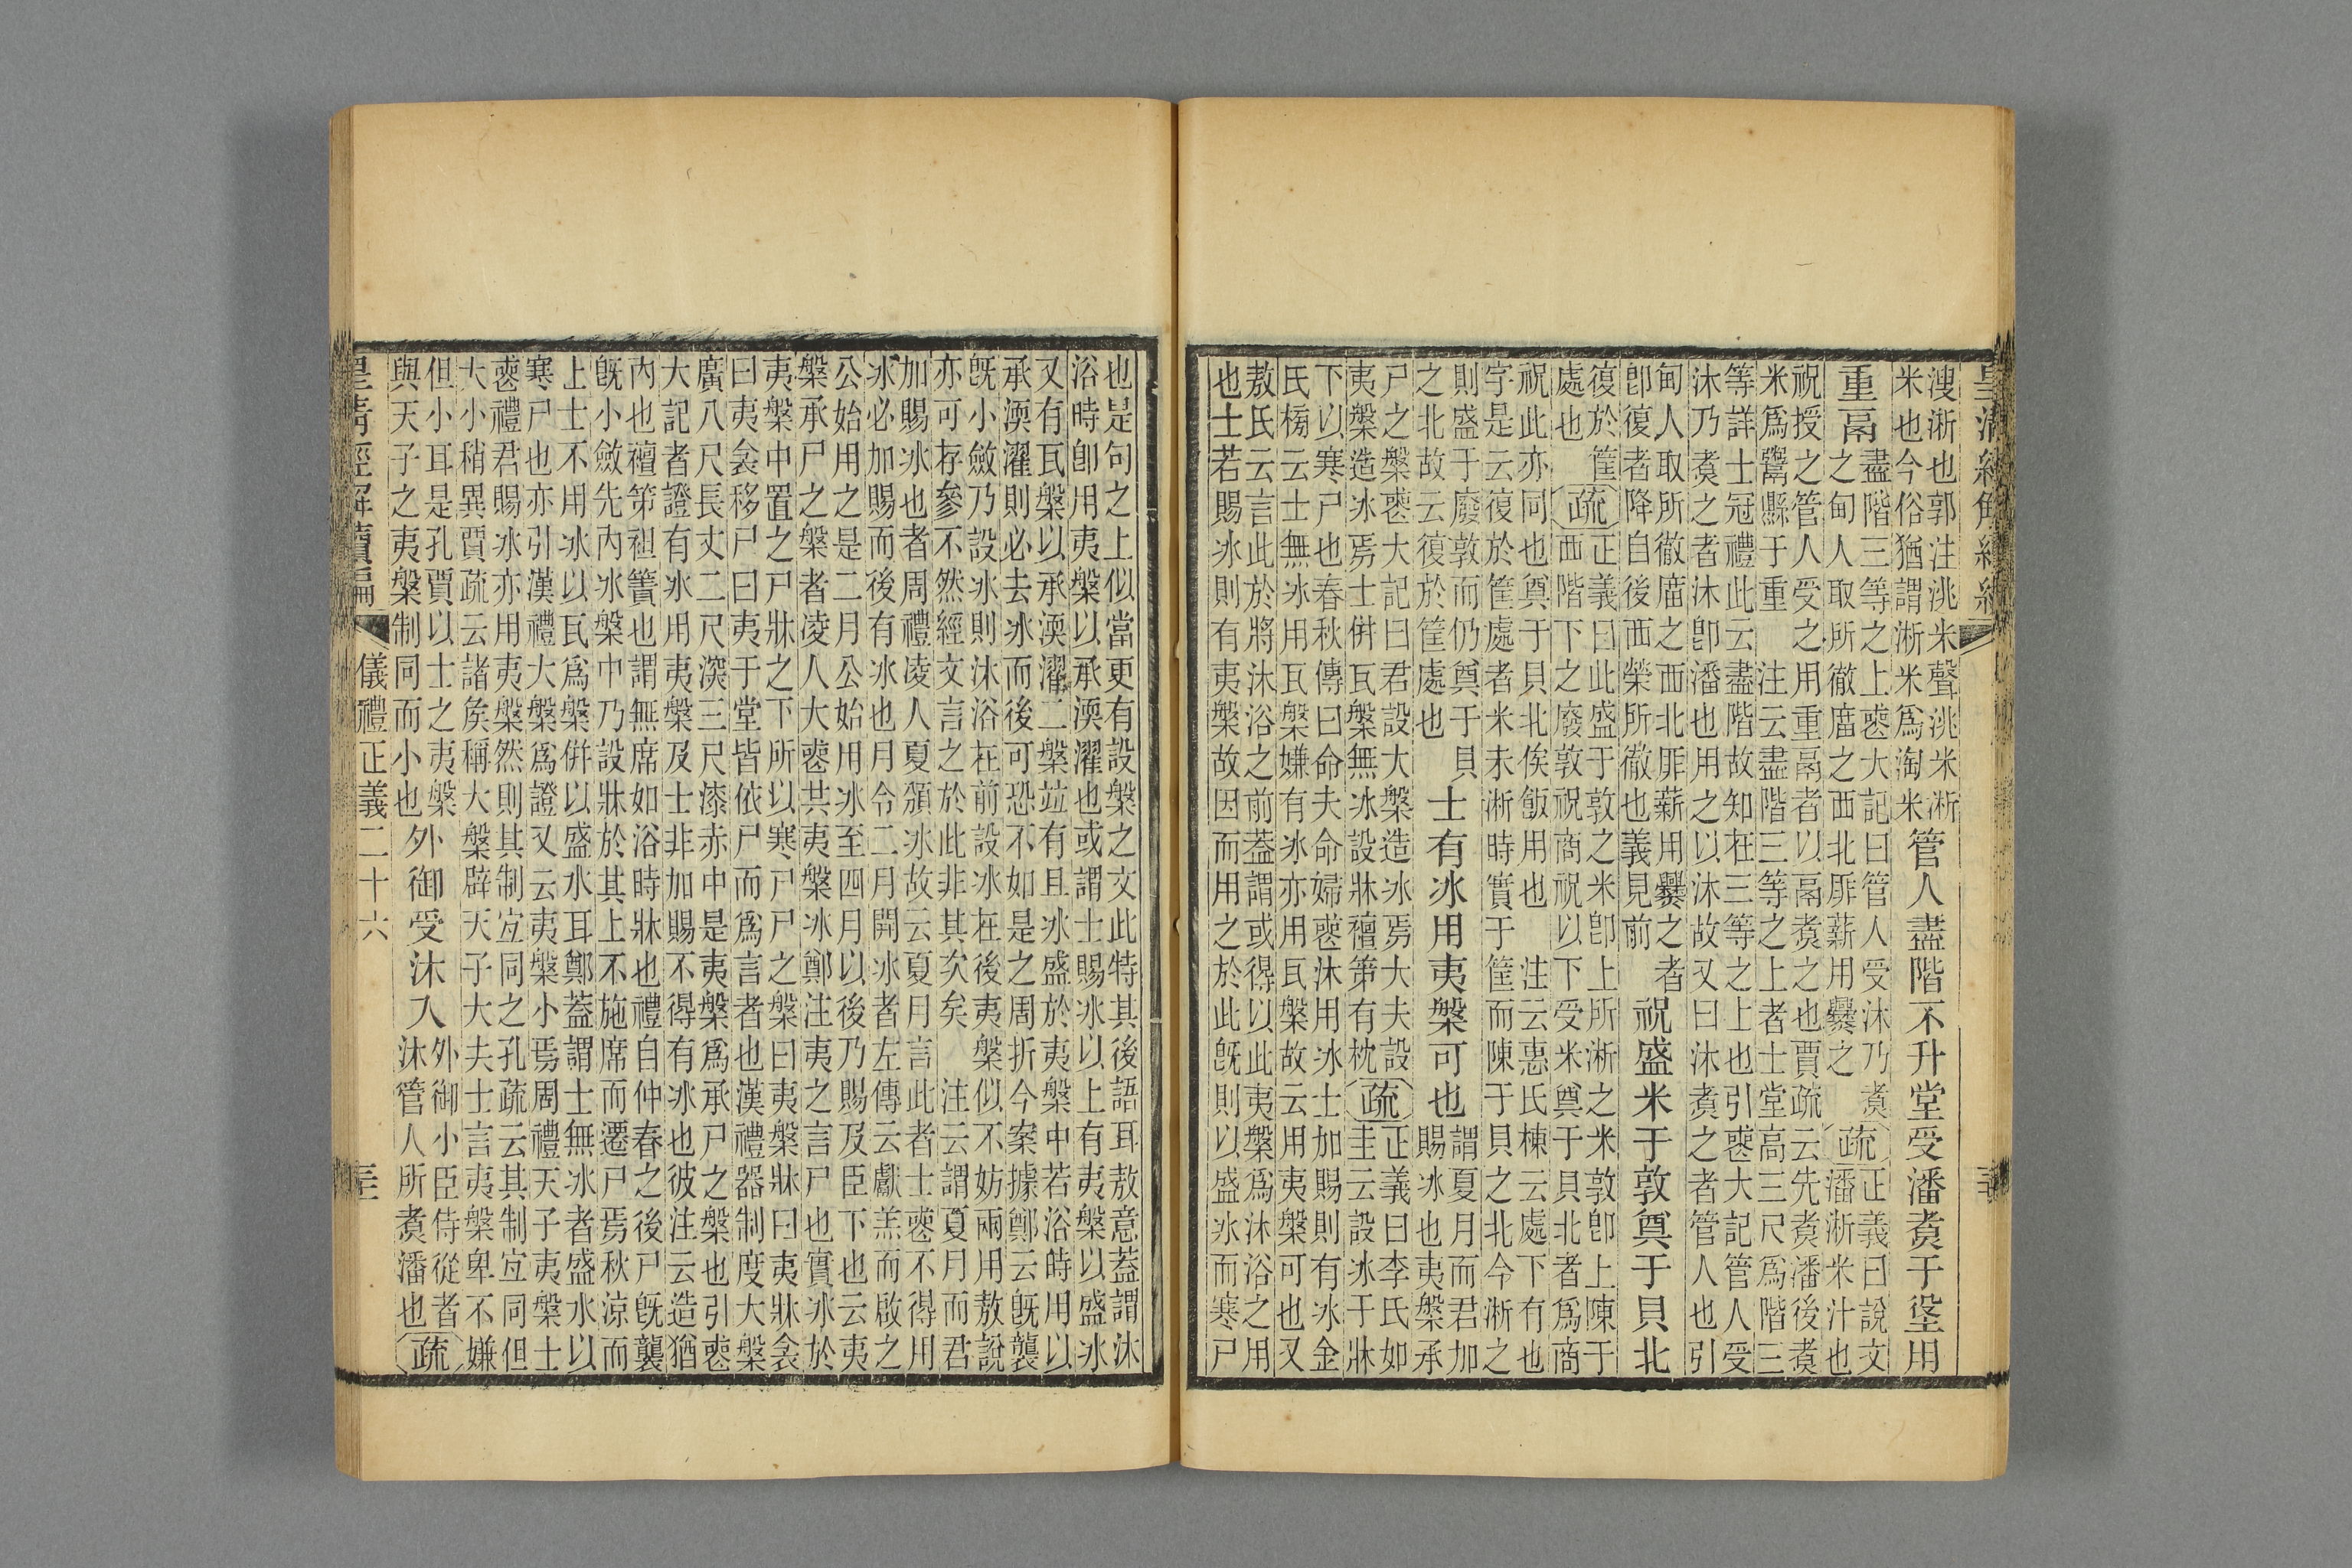 皇清經解續編
溲淅也郭注洮米聲洮米淅
米也今俗猶謂淅米爲淘米
管人盡階不升堂受潘煑于垼用
重鬲
盡階三等之上喪大記曰管人受沐乃煑
之甸人取所徹廟之西北厞薪用爨之
疏
正義曰說文
潘淅米汁也
祝授之管人受之用重鬲者以鬲煑之也賈疏云先煑潘後煑
米爲鬻縣于重　注云盡階三等之上者士堂高三尺爲階三
等詳士冠禮此云盡階故知在三等之上也引喪大記管人受
沐乃煑之者沐卽潘也用之以沐故又曰沐煑之者管人也引
甸人取所徹廟之西北厞薪用爨之者
卽復者降自後西榮所徹也義見前
祝盛米于敦奠于貝北
復於筐
處也
疏
正義曰此盛于敦之米卽上所淅之米敦卽上陳于
西階下之廢敦祝商祝以下受米奠于貝北者爲商
祝此亦同也奠于貝北俟飯用也　注云惠氏棟云處下有也
字是云復於筐處者米未淅時實于筐而陳于貝之北今淅之
則盛于廢敦而仍奠于貝
之北故云復於筐處也
士有冰用夷槃可也
謂夏月而君加
賜冰也夷槃承
尸之槃喪大記曰君設大槃造冰焉大夫設
夷槃造冰焉士倂瓦槃無冰設牀襢第有枕
疏
正義曰李氏如
圭云設冰于牀
下以寒尸也春秋傳曰命夫命婦喪沐用冰士加賜則有冰金
氏榜云士無冰用瓦槃嫌有冰亦用瓦槃故云用夷槃可也又
敖氏云言此於將沐浴之前蓋謂或得以此夷槃爲沐浴之用
也士若賜冰則有夷槃故因而用之於此旣則以盛冰而寒尸
也是句之上似當更有設槃之文此特其後語耳敖意蓋謂沐
浴時卽用夷槃以承渜濯也或謂士賜冰以上有夷槃以盛冰
又有瓦槃以承渜濯二槃竝有且冰盛於夷槃中若浴時用以
承渜濯則必去冰而後可恐不如是之周折今案據鄭云旣襲
旣小斂乃設冰則沐浴在前設冰在後夷槃似不妨兩用敖說
亦可存參不然經文言之於此非其次矣　注云謂夏月而君
加賜冰也者周禮凌人夏頒冰故云夏月言此者士喪不得用
冰必加賜而後有冰也月令二月開冰者左傳云獻羔而啟之
公始用之是二月公始用冰至四月以後乃賜及臣下也云夷
槃承尸之槃者凌人大喪共夷槃冰鄭注夷之言尸也實冰於
夷槃中置之尸牀之下所以寒尸尸之槃曰夷槃牀曰夷牀衾
曰夷衾移尸曰夷于堂皆依尸而爲言者也漢禮器制度大槃
廣八尺長丈二尺深三尺漆赤中是夷槃爲承尸之槃也引喪
大記者證有冰用夷槃及士非加賜不得有冰也彼注云造猶
內也襢第袒簀也謂無席如浴時牀也禮自仲春之後尸旣襲
旣小斂先內冰槃中乃設牀於其上不施席而遷尸焉秋涼而
上士不用冰以瓦爲槃倂以盛水耳鄭蓋謂士無冰者盛水以
寒尸也亦引漢禮大槃爲證又云夷槃小焉周禮天子夷槃士
喪禮君賜冰亦用夷槃然則其制宜同之孔疏云其制宜同但
大小稍異賈疏云諸矦稱大槃辟天子大夫士言夷槃卑不嫌
但小耳是孔賈以士之夷槃
與天子之夷槃制同而小也
外御受沐入
外御小臣侍從者
沐管人所煑潘也
疏
皇清經解續編
儀禮正義二十六